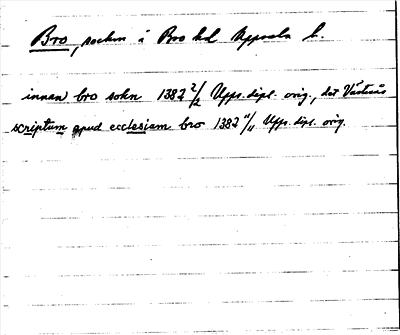 Bro, socken i Bro hd Uppsala l.
innan bro sokn 1382 2/2 Upps. dipl. orig., dat Västerås
scriptum apud ecclesiam bro 1382 11/11 Upps. dipl. orig.